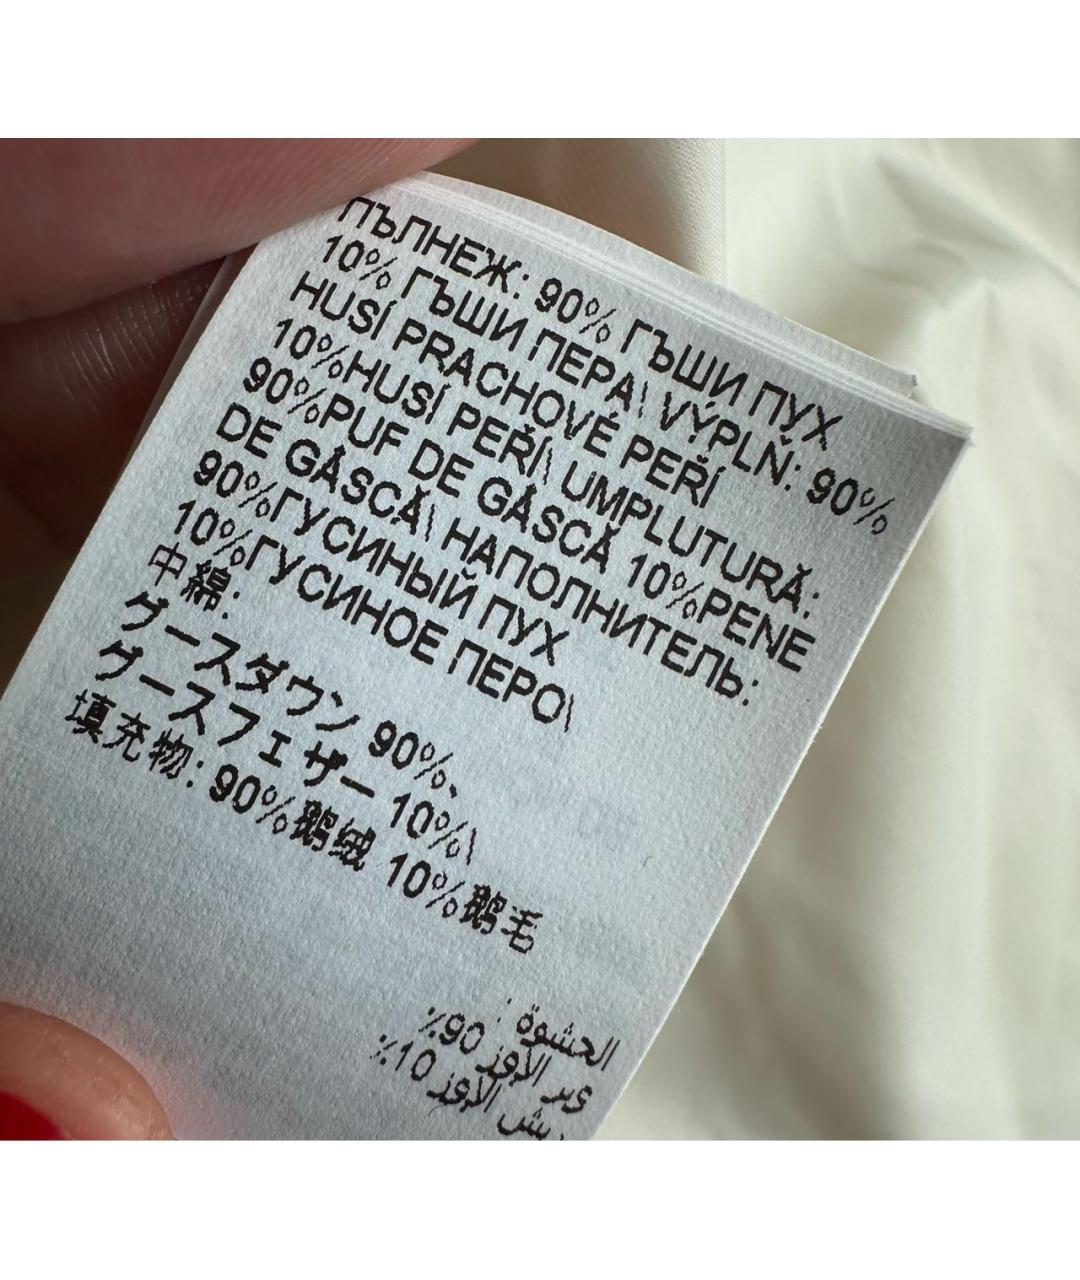 ПЪЛНЕЖ: 90% ГЪШИ ПУХ
10% ГЪШИ ПЕРА\ VÝPLŇ: 90%
HUSÍ PRACHOVÉ PEŘÍ
10%HUSÍ PEŘÍ\ UMPLUTURĂ:
90%PUF DE GÂSCĂ 10%PENE
DE GÂSCĂ\ НАПОЛНИТЕЛЬ:
90%ГУСИНЫЙ ПУХ
10%ГУСИНОЕ ПЕРО\
中綿:
グースダウン 90%、
グースフェザー 10%\
填充物: 90%鹅绒 10%鹅毛
الحشوة :
الأوز 90٪
الأوز 10٪